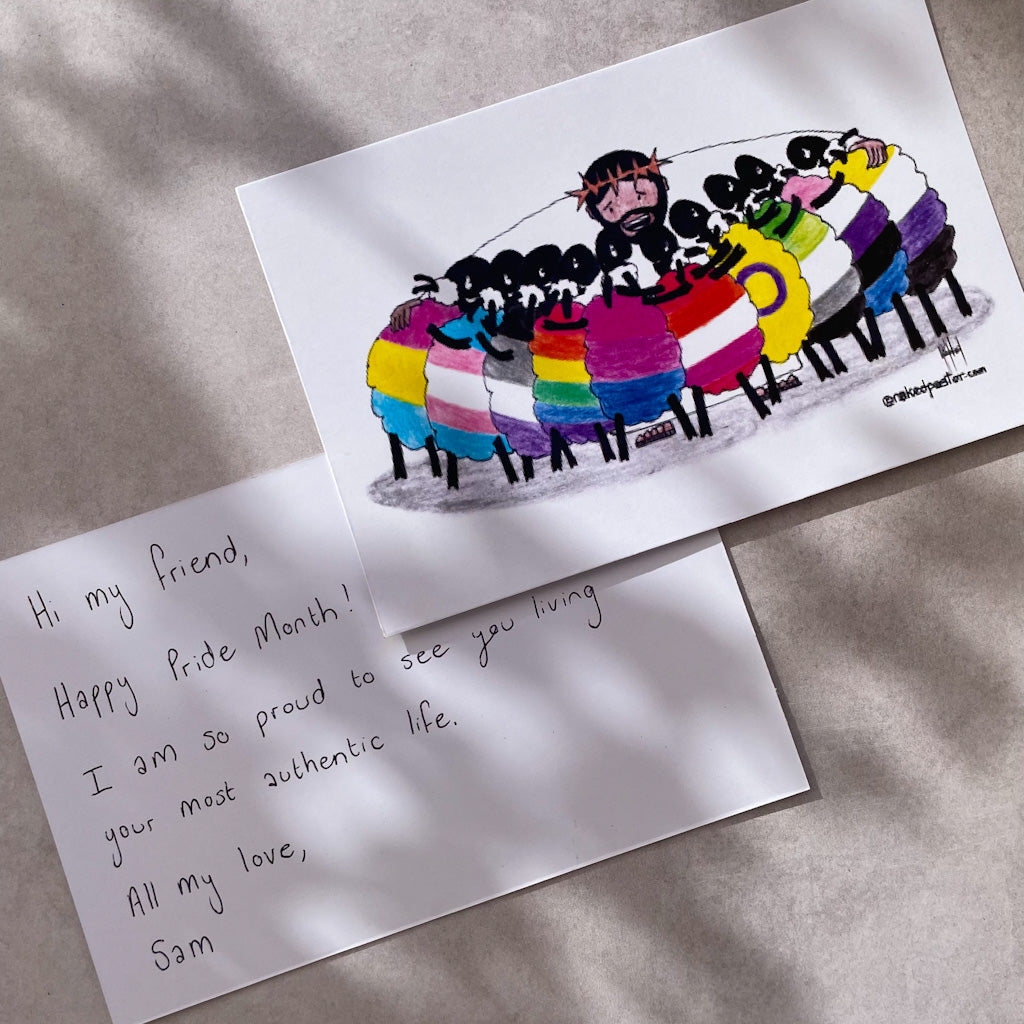 @nakedpastor.com
Hi my friend,
Happy Pride Month!
I am so proud to see you living
your most authentic life.
All my love,
Sam